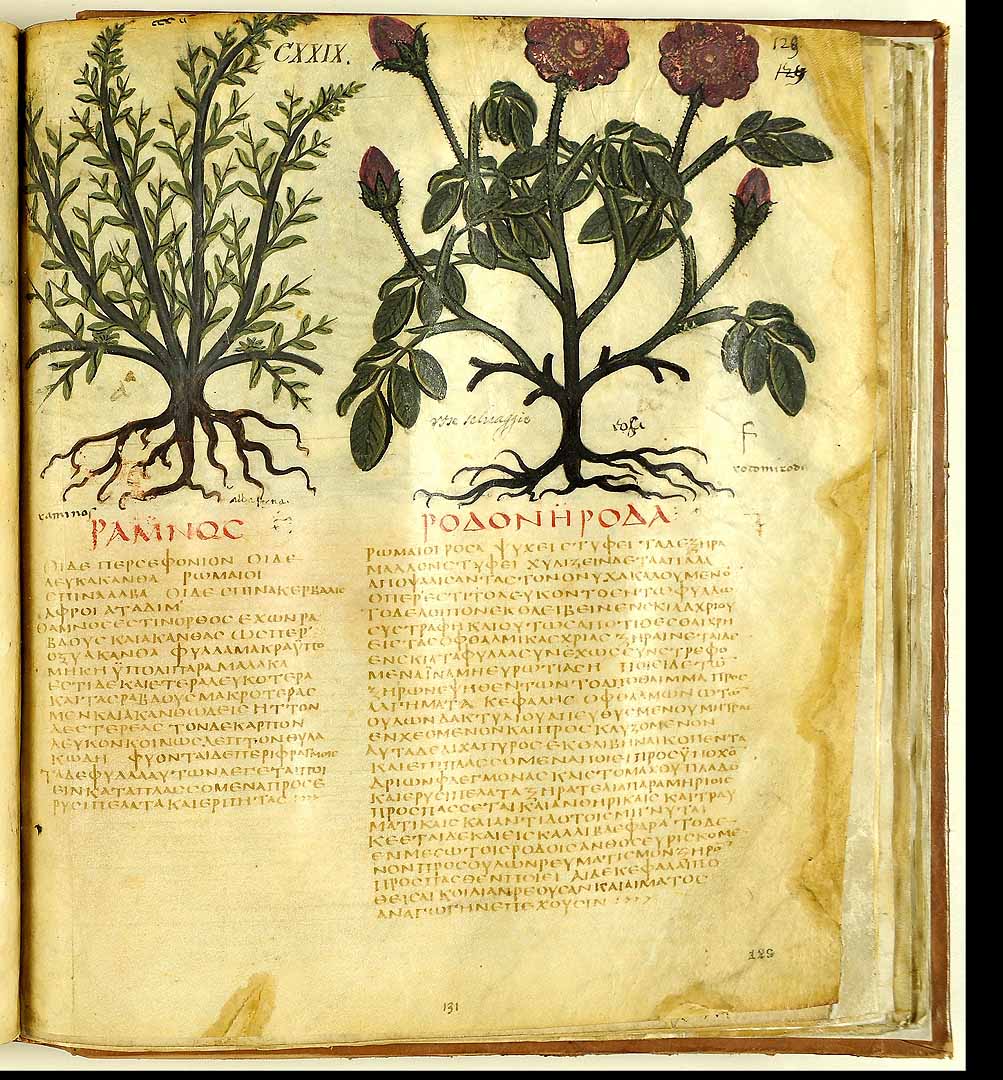 CXXIX.
129
129
rose selvaggie
ραμνος
ΡΑΜΝΟΣ
ΟΙ ΔΕ ΠΕΡΣΕΦΟΝΙΟΝ ΟΙ ΔΕ
ΛΕΥΚΑΚΑΝΘΑ ΡΩΜΑΙΟΙ
ΣΠΙΝΑΛΒΑ ΟΙ ΔΕ ΣΠΙΝΑΚΕΡΒΑΛΙΣ
ΑΦΡΟΙ ΑΤΑΔΙΜ
ΘΑΜΝΟΣ ΕΣΤΙΝ ΟΡΘΟΣ ΕΧΩΝ ΡΑ
ΒΔΟΥΣ ΚΑΙ ΑΚΑΝΘΑΣ ΩΣΠΕΡ
ΟΞΥΑΚΑΝΘΑ ΦΥΛΛΑ ΜΑΚΡΑ ΥΠΟ
ΜΗΚΗ ΫΠΟΛΙΠΑΡΑ ΜΑΛΑΚΑ
ΕΣΤΙ ΔΕ ΚΑΙ ΕΤΕΡΑ ΛΕΥΚΟΤΕΡΑ
ΚΑΙ ΤΑΣ ΡΑΒΔΟΥΣ ΜΑΚΡΟΤΕΡΑΣ
ΜΕΝ ΚΑΙ ΑΚΑΝΘΩΔΕΙΣ ΗΤΤΟΝ
ΔΕ ΣΤΕΡΕΑΣ ΤΟΝ ΔΕ ΚΑΡΠΟΝ
ΛΕΥΚΟΝ ΚΟΙΝΩΣ ΛΕΠΤΟΝ ΘΥΛΑ
ΚΩΔΗ ΦΥΟΝΤΑΙ ΔΕ ΠΕΡΙ ΦΡΑΓΜΟΙΣ
ΤΑ ΔΕ ΦΥΛΛΑ ΑΥΤΩΝ ΛΕΓΕΤΑΙ ΠΟΙ
ΕΙΝ ΚΑΤΑΠΛΑΣΣΟΜΕΝΑ ΠΡΟΣ Ε
ΡΥΣΙΠΕΛΑΤΑ ΚΑΙ ΕΡΠΗΤΑΣ
ΡΟΔΟΝ Η ΡΟΔΑ
ΡΩΜΑΙΟΙ ΡΟΣΑ ΨΥΧΕΙ ΣΤΥΦΕΙ ΤΑ ΔΕ ΞΗΡΑ
ΜΑΛΛΟΝ ΣΤΥΦΕΙ ΧΥΛΙΖΕΙΝ ΔΕ ΤΑ ΑΠΑΛΑ
ΑΠΟΨΑΛΙΣΑΝΤΑΣ ΤΟΝ ΟΝΥΧΑ ΚΑΛΟΥΜΕΝΟ
ΟΠΕΡ ΕΣΤΙ ΤΟ ΛΕΥΚΟΝ ΤΟ ΕΝ ΤΩ ΦΥΛΛΩ
ΤΟ ΔΕ ΛΟΙΠΟΝ ΕΚΘΛΕΙΒΕΙΝ ΕΝ ΣΚΙΑ ΑΧΡΙ ΟΥ
ΣΥΣΤΡΑΦΗ ΚΑΙ ΟΥΤΩΣ ΑΠΟΤΙΘΕΣΘΑΙ ΧΡΗ
ΕΙΣ ΤΑΣ ΟΦΘΑΛΜΙΚΑΣ ΧΡΙΑΣ ΞΗΡΑΙΝΕΤΑΙ ΔΕ
ΕΝ ΣΚΙΑ ΤΑ ΦΥΛΛΑ ΣΥΝΕΧΩΣ ΣΥΝΣΤΡΕΦΟ
ΜΕΝΑ ΪΝΑ ΜΗ ΕΥΡΩΤΙΑΣΗ
ΞΗΡΩΝ ΕΨΗΘΕΝΤΩΝ ΤΟ ΑΠΟΘΛΙΜΜΑ ΠΡΟΣ
ΑΛΓΗΜΑΤΑ ΚΕΦΑΛΗΣ ΟΦΘΑΛΜΩΝ ΩΤΩ
ΟΥΛΩΝ ΔΑΚΤΥΛΙΟΥ ΑΠΕΥΘΥΣΜΕΝΟΥ ΜΗΤΡΑΣ
ΕΝΧΕΟΜΕΝΟΝ ΚΑΙ ΠΡΟΣΚΛΥΖΟΜΕΝΟΝ
ΑΥΤΑ ΔΕ ΔΙΧΑ ΠΥΡΟΣ ΕΚΘΛΙΒΗΝΑΙ ΚΟΠΕΝΤΑ
ΚΑΙ ΕΠΙΠΛΑΣΣΟΜΕΝΑ ΠΟΙΕΙ ΠΡΟΣ ΫΠΟΧΟ
ΔΡΙΩΝ ΦΛΕΓΜΟΝΑΣ ΚΑΙ ΣΤΟΜΑΧΟΥ ΠΛΑΔΟ
ΚΑΙ ΕΡΥΣΙΠΕΛΑΤΑ ΞΗΡΑ ΤΕ ΛΙΑ ΠΑΡΑΜΗΡΙΟΙΣ
ΠΡΟΣΠΑΣΣΕΤΑΙ ΚΑΙ ΑΝΘΗΡΙΚΑΙΣ ΚΑΙ ΤΡΑΥ
ΜΑΤΙΚΑΙΣ ΚΑΙ ΑΝΤΙΔΟΤΟΙΣ ΜΙΓΝΥΤΑΙ
ΚΕΕΤΑΙ ΔΕ ΚΑΙ ΕΙΣ ΚΑΛΛΙΒΛΕΦΑΡΑ ΤΟ ΔΕ
ΕΝ ΜΕΣΩ ΤΟΙΣ ΡΟΔΟΙΣ ΑΝΘΟΣ ΕΥΡΙΣΚΟΜΕ
ΝΟΝ ΠΡΟΣ ΟΥΛΩΝ ΡΕΥΜΑΤΙΣΜΟΝ ΞΗΡΟ
ΠΡΟΣΠΑΣΘΕΝ ΠΟΙΕΙ ΑΙ ΔΕ ΚΕΦΑΛΑΙ ΠΟ
ΘΕΙΣΑΙ ΚΟΙΛΙΑΝ ΡΕΟΥΣΑΝ ΚΑΙ ΑΙΜΑΤΟΣ
ΑΝΑΓΩΓΗΝ ΕΠΕΧΟΥΣΙΝ
129
131